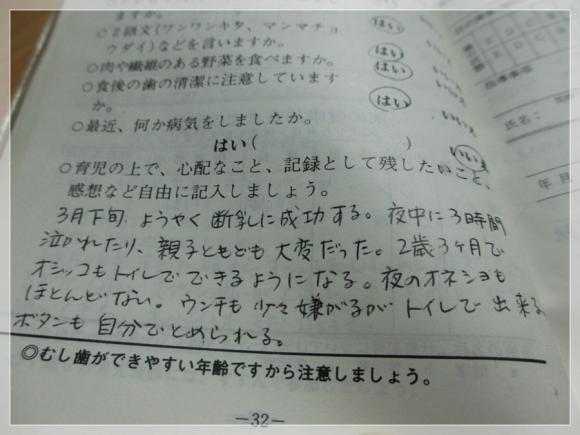 ますか。 はい
○2語文(ワンワンキタ、マンマチョ
ウダイ)などを言いますか。 はい
○肉や繊維のある野菜を食べますか。 はい
○食後の歯の清潔に注意しています
か。 はい
○最近、何か病気をしましたか。
はい( ) いいえ
○育児の上で、心配なこと、記録として残したいこと、
感想など自由に記入しましょう。
3月下旬 ようやく断乳に成功する。夜中に3時間
泣かれたり、親子ともども大変だった。2歳3ヶ月で
オシッコもトイレでできるようになる。夜のオネショも
ほとんどない。ウンチも少々嫌がるがトイレで出来る
ボタンも自分でとめられる。
◎むし歯ができやすい年齢ですから注意しましょう。
―32―
指導事項
氏名:
年 月